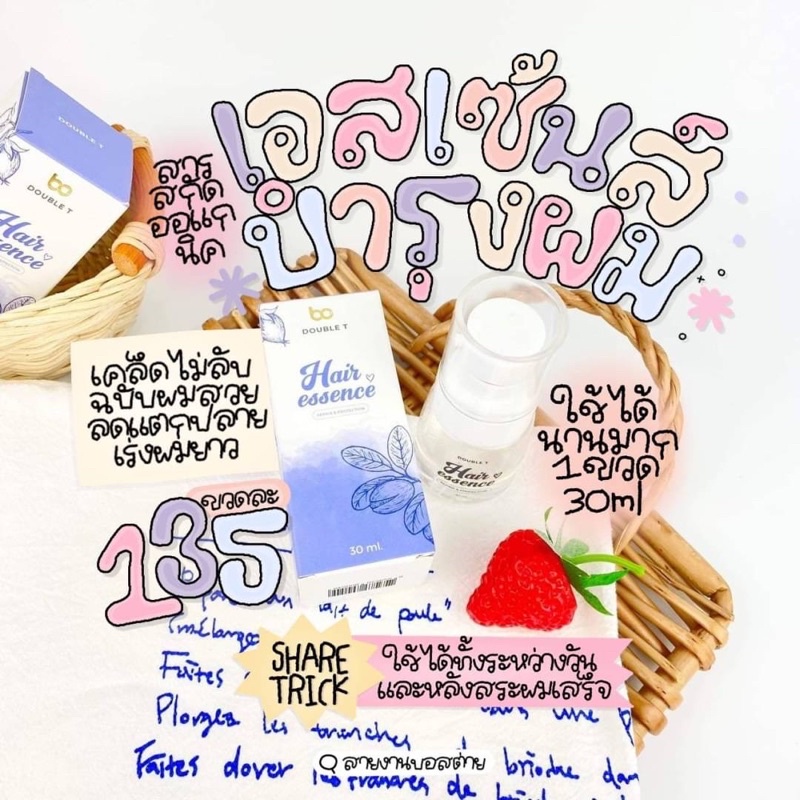 เอสเซ้นส์
บำรุงผม
สาร
สกัด
ออแก
นิค
DOUBLE T
DOUBLE T
Hair
essence
เคล็ดไม่ลับ
ฉบับผมสวย
ลดแตกปลาย
เร่งผมยาว
DOUBLE T
Hair
essence
30 ml.
DOUBLE T
Hair
essence
ใช้ได้
นานมาก
1ขวด
30ml
ขวดละ
135
lait de poule"
Faites
SHARE
TRICK
ใช้ได้ทั้งระหว่างวัน
และหลังสระผมเสร็จ
Plongez les tranches
สายงานบอสต่าย
Faites dorer les tranches de brioche